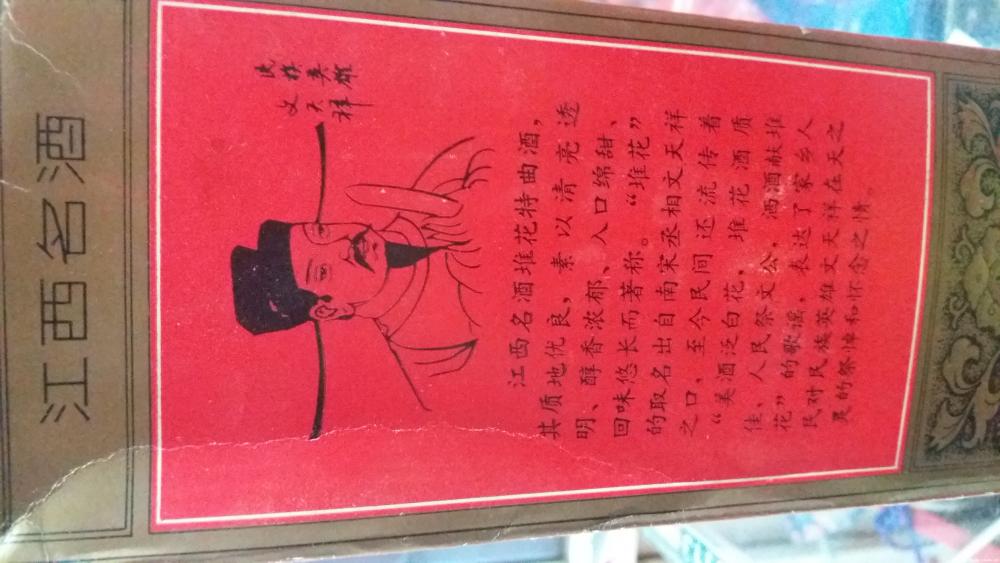 江西名酒
民族英雄
文天祥
江西名酒堆花特曲酒，
其质地优良，素以清亮透
明、醇香浓郁、入口绵甜、
回味悠长而著称。“堆花”
的取名出自南宋丞相文天祥
之口、至今民间还流传着
“美酒泛白花，堆花酒质
佳、人民祭文公，洒酒献堆
花”的歌谣，表达了家乡人
民对民族英雄文天祥在天之
灵的祭悼和怀念之情。